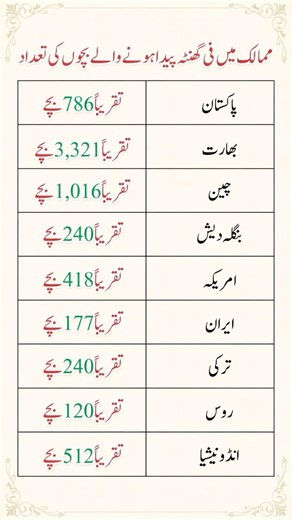 ممالک میں فی گھنٹہ پیدا ہونے والے بچوں کی تعداد
پاکستان تقریباً 786 بچے
بھارت تقریباً 3,321 بچے
چین تقریباً 1,016 بچے
بنگلہ دیش تقریباً 240 بچے
امریکہ تقریباً 418 بچے
ایران تقریباً 177 بچے
ترکی تقریباً 240 بچے
روس تقریباً 120 بچے
انڈونیشیا تقریباً 512 بچے